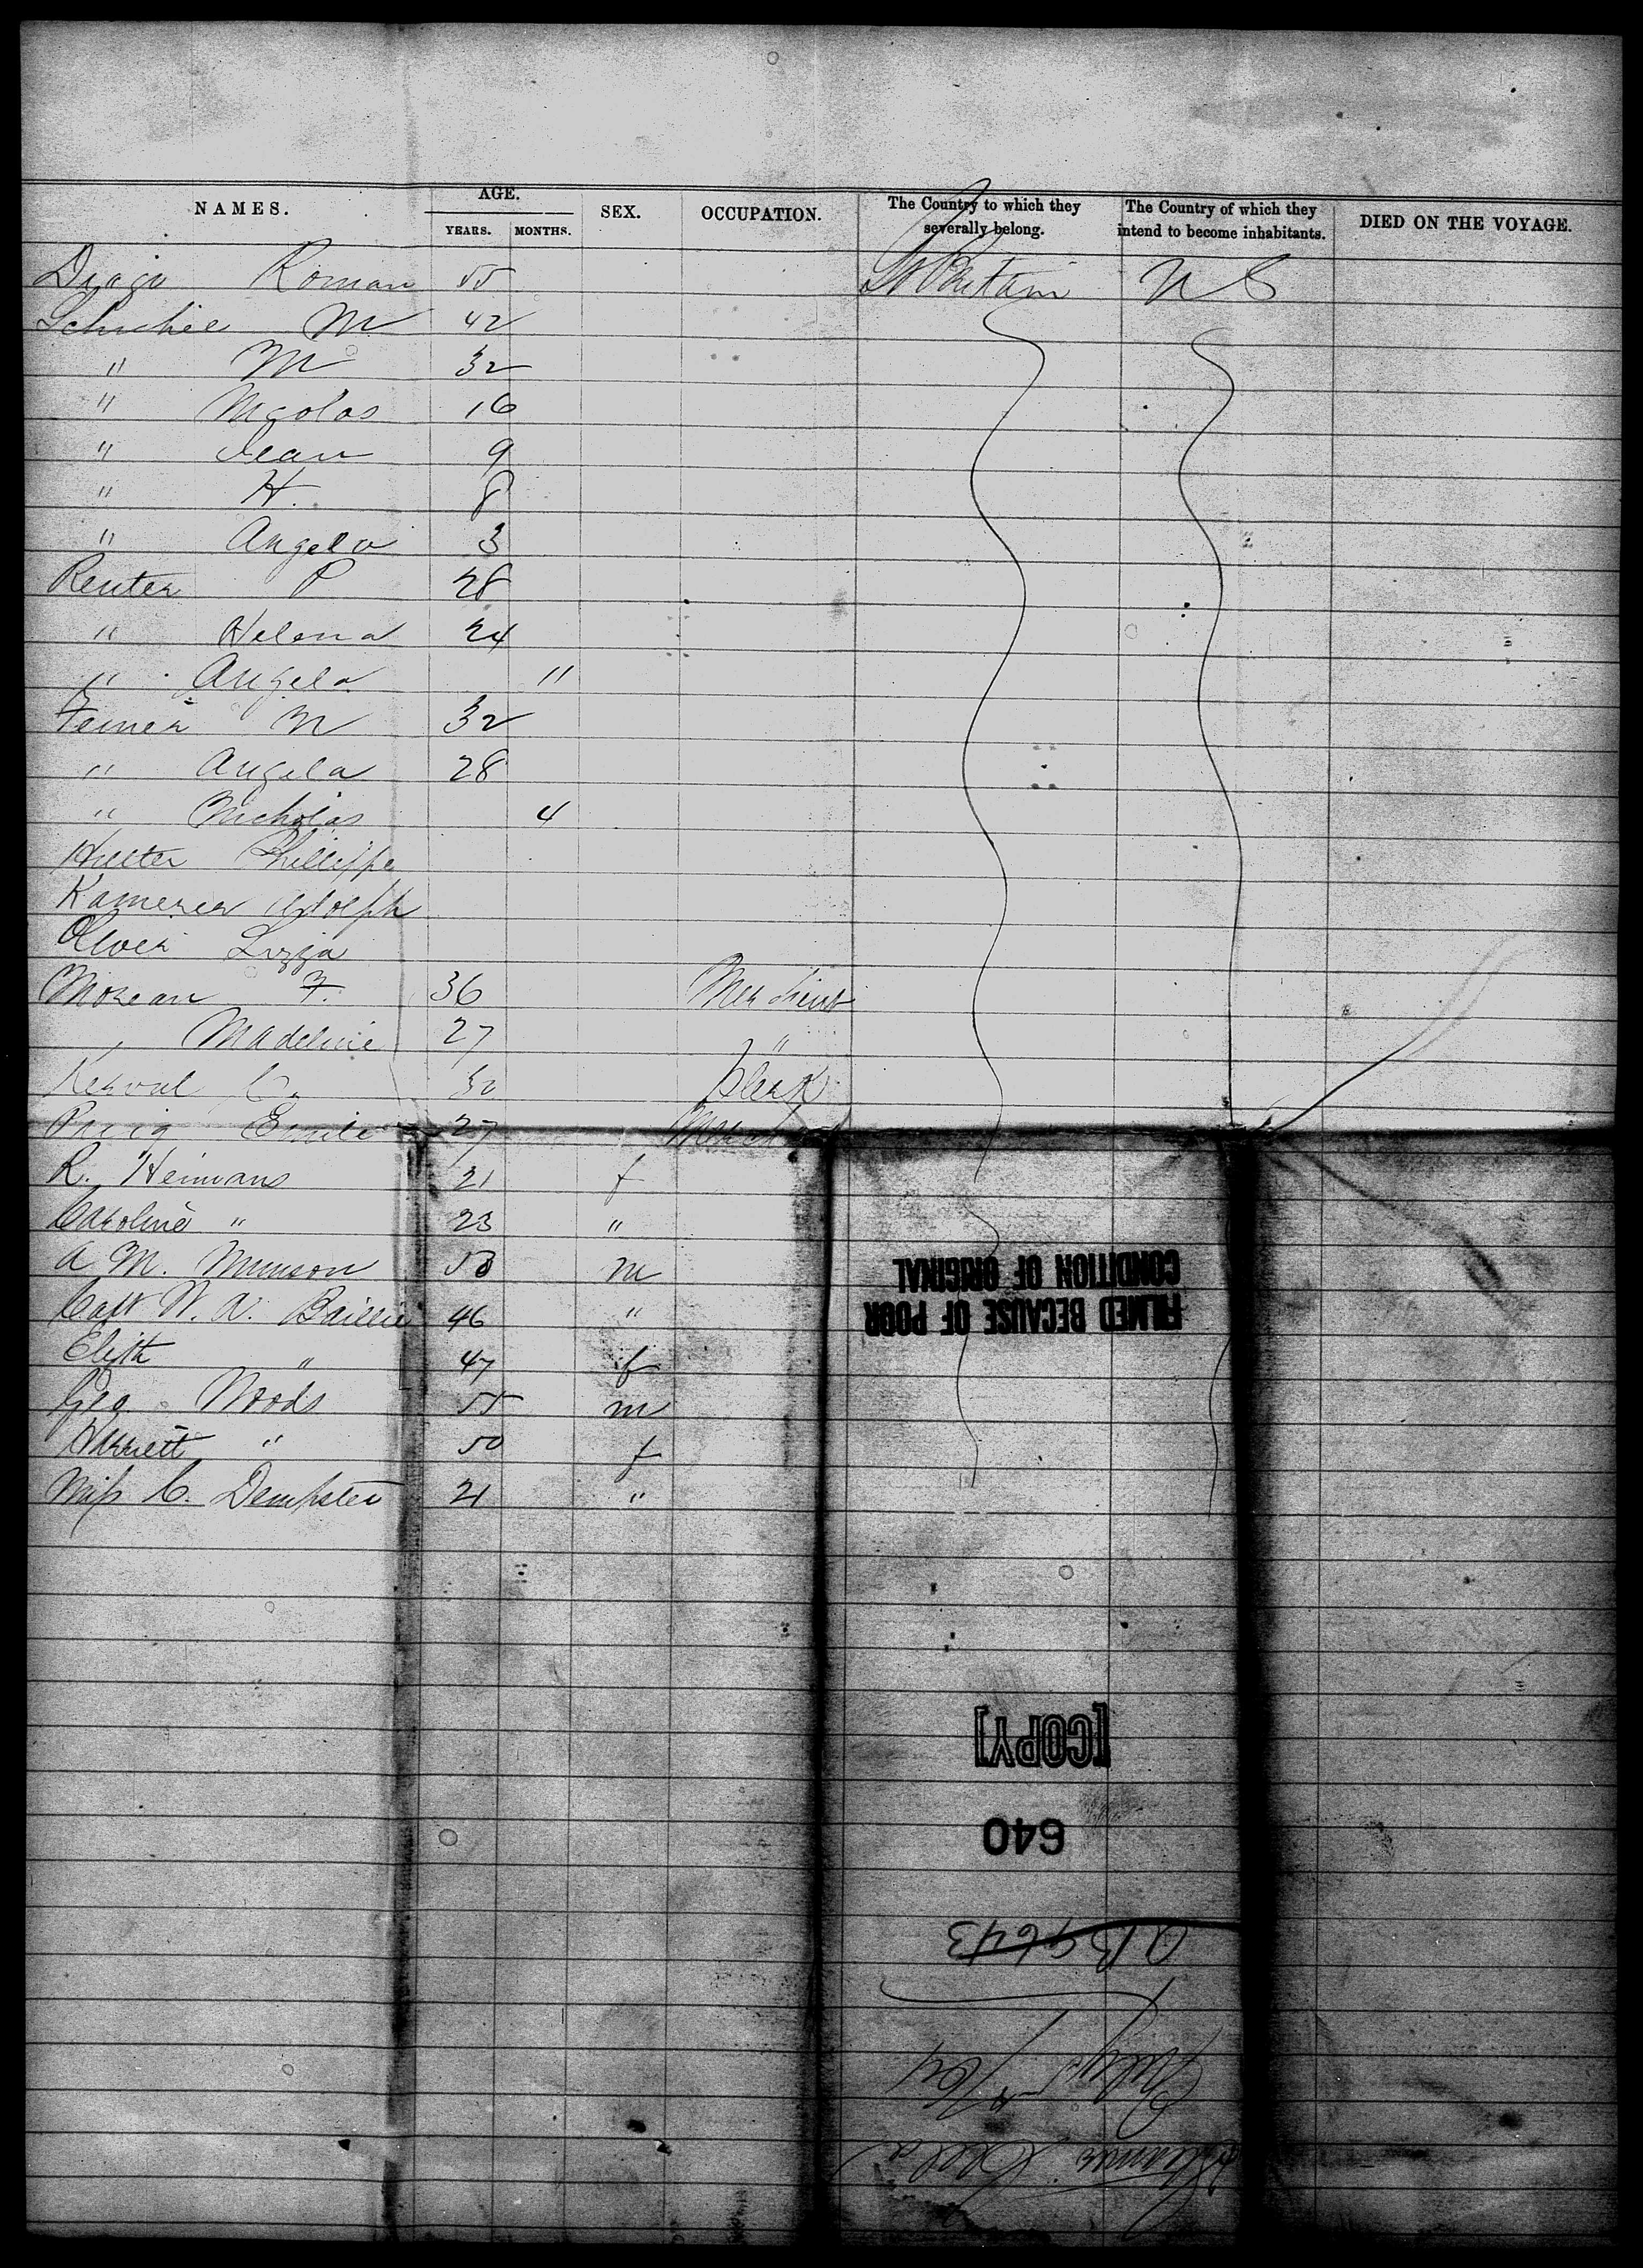 NAMES. AGE. SEX. OCCUPATION. The Country to which they severally belong. The Country of which they intend to become inhabitants. DIED ON THE VOYAGE.
YEARS. MONTHS.
Roman 55 Gt Britain U S
M 42
" M 32
" Nicolas 16
" Jean 9
" H. 8
" Angela 3
Reuter P 28
" Helena 24
" Angela 11
Feiner N 32
" Angela 28
" Nicholas 4
Phillippe
Kamerer Adolph
Oliver Lizzia
Morean F. 36 Merchant
" Madeline 27 "
Kerval C. 30 Clerk
Emile 27 Merchant
R. Heimans 21 f
Caroline " 23 "
A M. Munson 50 m
Capt W. A. Baillie 46 "
Elizth " 47 f
Geo Woods 55 m
Harriett " 50 f
Miss C. Dempster 21 "
FILMED BECAUSE OF POOR
CONDITION OF ORIGINAL
[COPY]
640
9643
July
Steamer